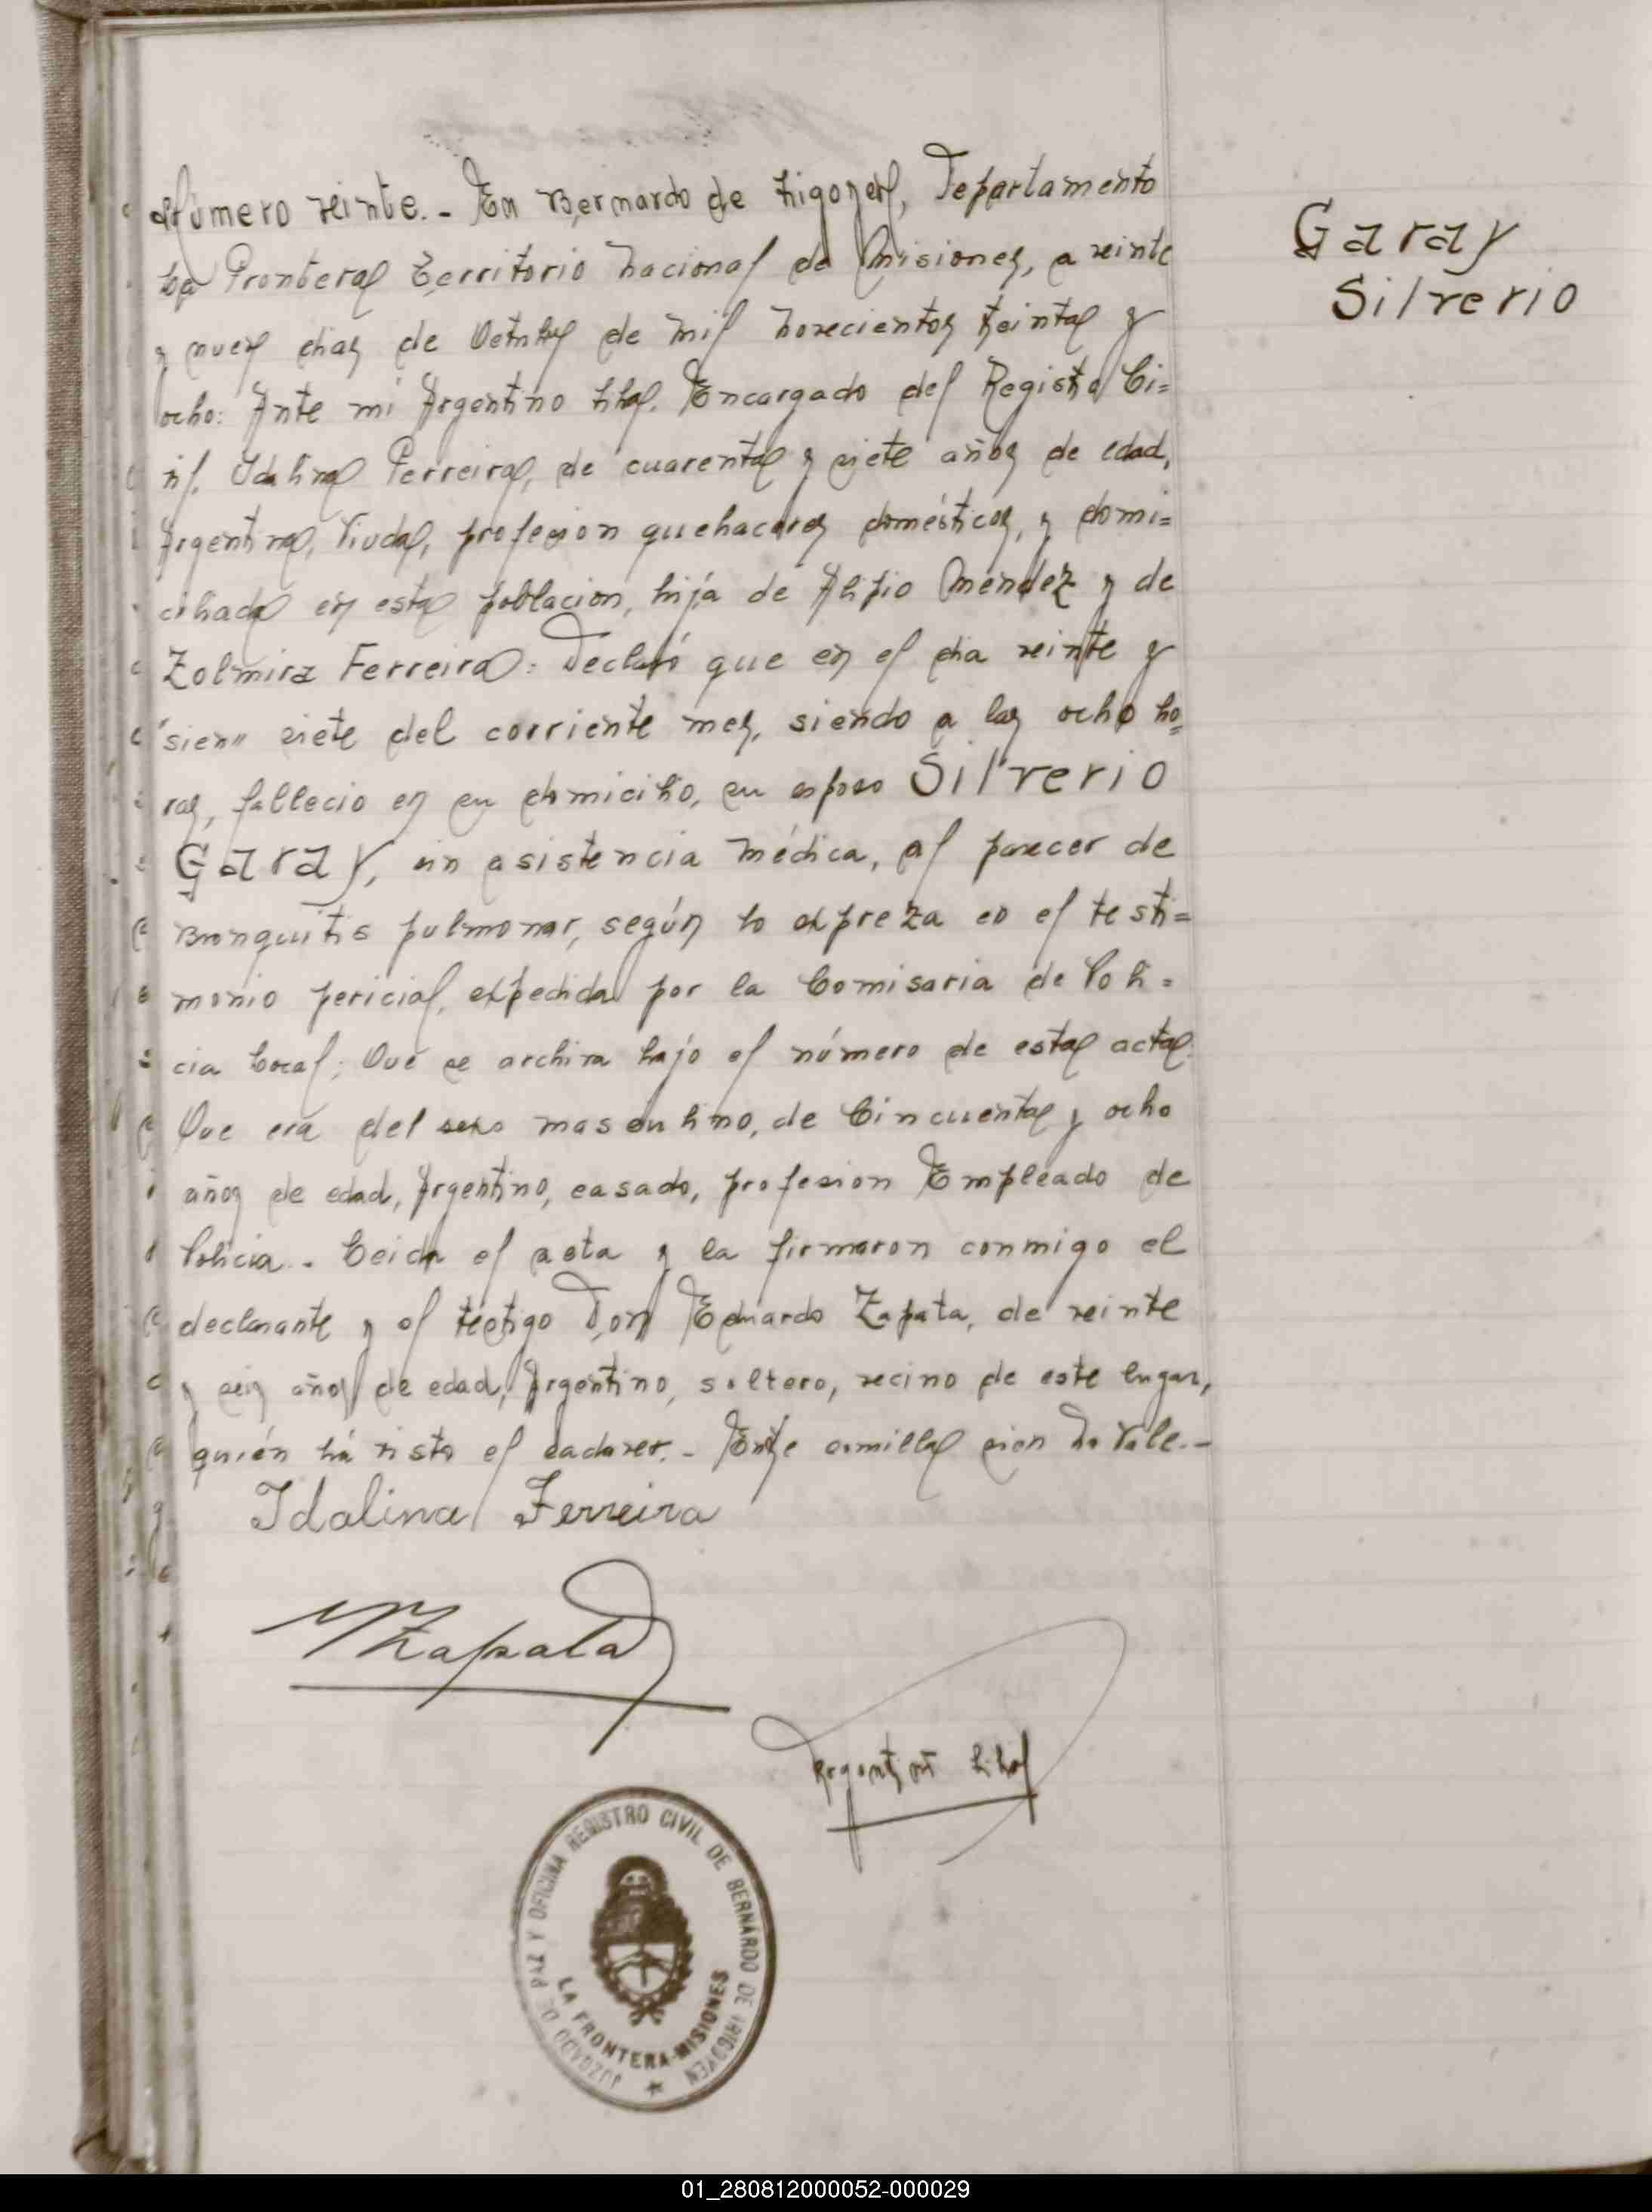 Número veinte.- En Bernardo de Irigoyen, Departamento
La Frontera Territorio Nacional de Misiones, a veinte
y nueve dias de Octubre de mil novecientos treinta y
ocho: Ante mi Argentino Encargado del Registro Ci=
vil. Idalina Ferreira, de cuarenta y siete años de edad,
Argentina, Viuda, profesion quehaceres domésticos, y domi=
ciliada en esta poblacion, hija de Alipio Méndez y de
Zolmira Ferreira: Declaró que en el dia veinte y
"sien" siete del corriente mes, siendo a las ocho ho=
ras, fallecio en su domicilio, su esposo Silverio
Garay, sin asistencia médica, al parecer de
Bronquitis pulmonar, según lo expreza en el testi=
monio pericial, expedida por la Comisaria de Poli=
cia Local; Que se archiva bajo el número de esta acta.
Que era del sexo masculino, de Cincuenta y ocho
años de edad, Argentino, casado, profesion Empleado de
Policia.- Leida el acta y la firmaron conmigo el
declarante y el téstigo Don Eduardo Zapata, de veinte
y seis años de edad, Argentino, soltero, vecino de este lugar,
quién há visto el cadaver.- Entre comillas sien No Vale.-
Garay
Silverio
Idalina Ferreira
Zapata
Argentino
JUZGADO DE PAZ Y OFICINA REGISTRO CIVIL DE BERNARDO DE IRIGOYEN
LA FRONTERA-MISIONES
01_280812000052-000029